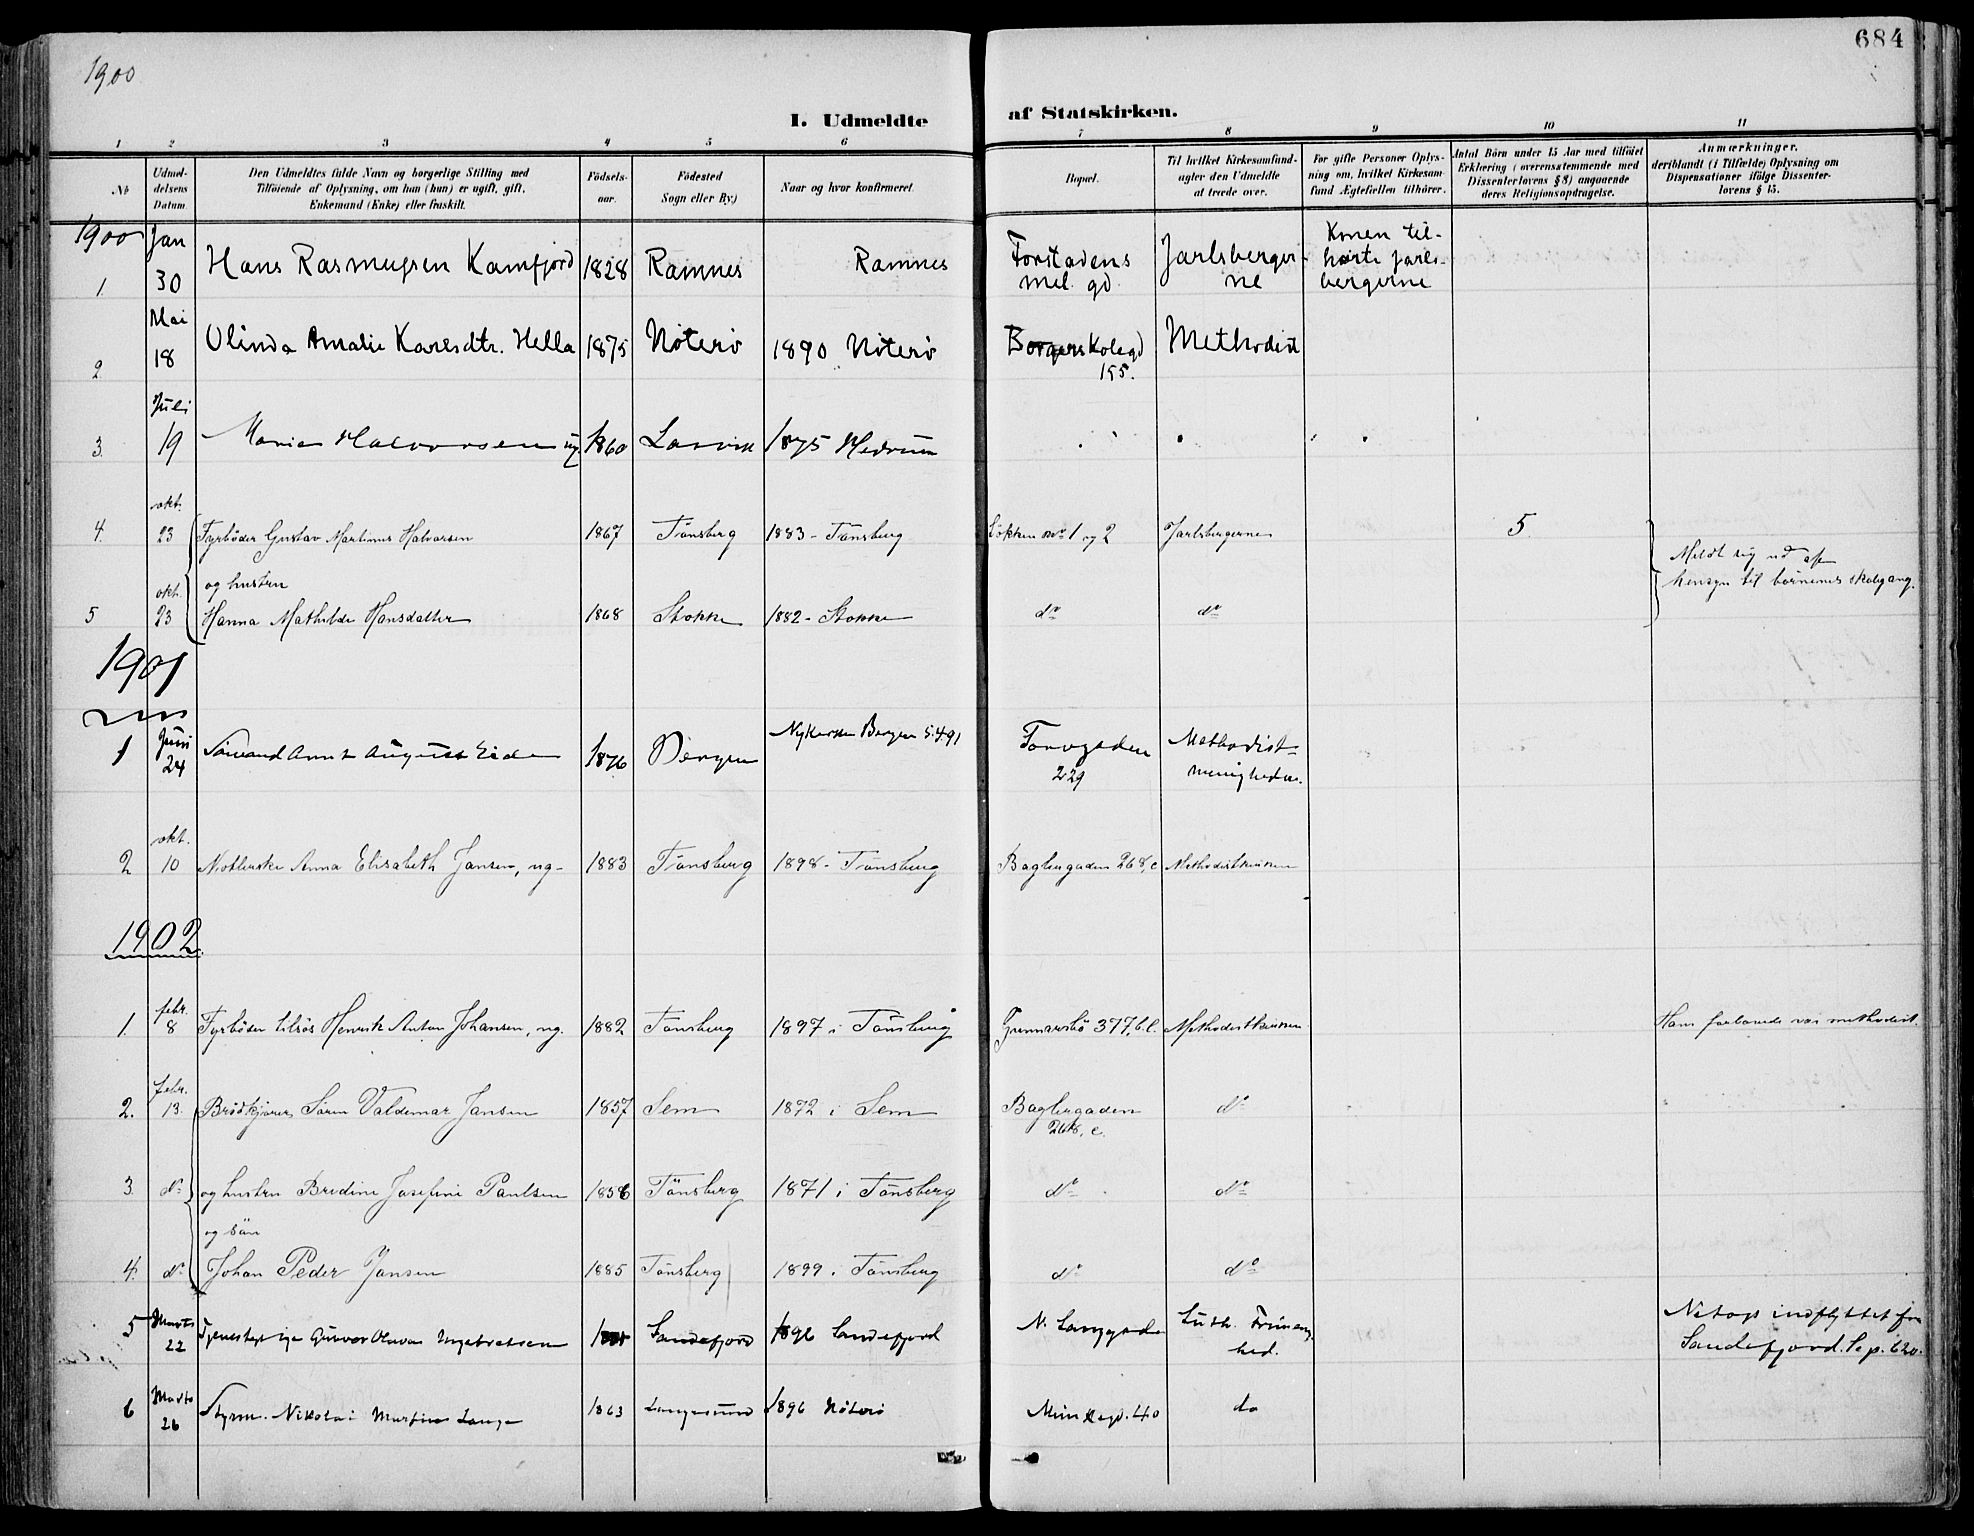 684
1900
I. Udmeldte af Statskirken.
1 2 3 4 5 6 7 8 9 10 11
No
Udmel-
delsens
Datum.
Den Udmeldtes fulde Navn og borgerlige Stilling med
Tilföiende af Oplysning, om han (hun) er ugift, gift,
Enkemand (Enke) eller fraskilt.
Födsels-
aar.
Födested
Sogn eller By.)
Naar og hvor konfirmeret.
Bopæl.
Til hvilket Kirkesamfund-
agter den Udmeldte
at træde over.
For gifte Personer Oplys-
ning om, hvilket Kirkesam-
fund Ægtefællen tilhører.
Antal Børn under 15 Aar med tilföiet
Erklæring (overensstemmende med
Dissenterlovens § 8) angaaende
deres Religionsopdragelse.
Anmærkninger,
deriblandt (i Tilfælde) Oplysning om
Dispensationer ifölge Dissenter-
lovens § 15.
1900
1. Jan 30 Hans Rasmussen Kamfjord 1828 Ramnes Ramnes Forstadens
mel. gd. Jarlsberger-
ne Konen til-
hörte Jarls-
bergerne
2. Mai 18 Olinda Amalie Karlsdtr. Hella 1875 Nöterö 1890 Nöterö Borgerskolegd
155. Methodist
3. Juli 19 Marie Halvorsen ug. 1860 Larvik 1875 Hedrum
4. okt. 23 Fyrböder Gustav Martinius Halvorsen 1867 Tönsberg 1883 - Tönsberg Lökken no 1 og 2 Jarlsbergerne 5
Meldt sig ud af
hensyn til börnenes skolegang.
og hustru
5 okt. 23 Hanna Mathilde Hansdatter 1868 Stokke 1882 - Stokke do do
1901
1 Juni 24 Sömand August Eide 1876 Bergen Nykirken Bergen 5.4.91 Torvgaden
229 Methodist-
menigheden.
2 okt. 10 Anna Elisabeth Jansen, ug- 1883 Tönsberg 1898 - Tönsberg Baglergaden 268, c Methodistkirken
1902
1. febr. 8 Fyrböder tilsös Henrik Anton Johansen, ug. 1882 Tönsberg 1897 i Tönsberg Grimmersbö 377, b.c. Methodistkirken Hans forlovede var methodist.
2. febr. 13. Brödkjörer Sören Valdemar Jansen 1857 Sem 1872 i Sem Baglergaden
268, c. do
3. do og hustru Bredine Josefine Paulsen 1856 Tönsberg 1871 i Tönsberg do do
og sön
4. do Johan Peder Jansen 1885 Tönsberg 1899 i Tönsberg do do
5 Marts 22 Tjenestepige Gunvor Olava Ingebretsen Sandefjord 1896 Sandefjord N. Langgade Luth. Frimenig-
hed. Netop indflyttet fra
Sandefjord. Se p. 620.
6 Marts 26 Styrm. Nikolai Martin Lange 1863 Langesund 1896 Nöterö Munkegd. 40 do